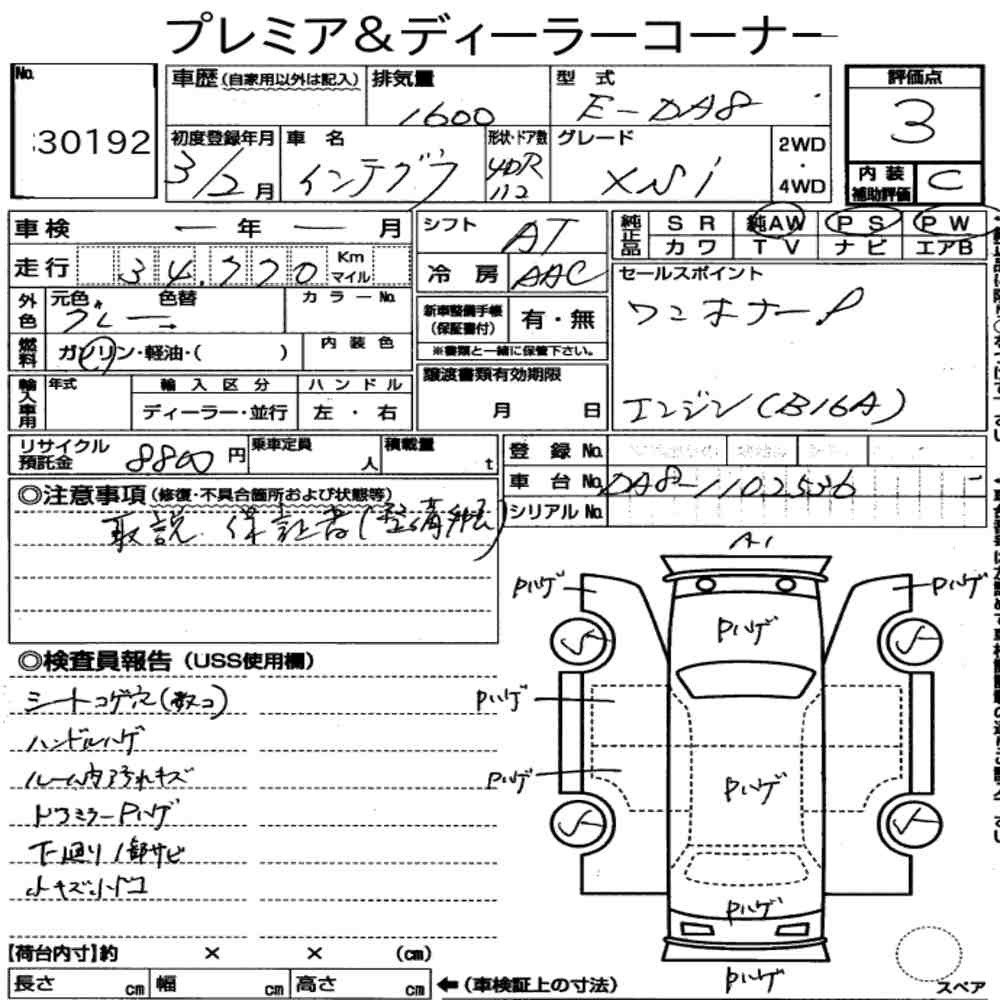 プレミア&ディーラーコーナー
No.
30192
車歴(自家用以外は記入)
排気量
1600
型式
E-DA8
評価点
3
初度登録年月
3/2月
車名
インテグラ
形状・ドア数
4DR
グレード
XSi
2WD
・
4WD
内装
補助評価
C
車検 ー年ー月
走行 34,770 Km
マイル
シフト
AT
冷房 AAC
純正品
SR 純AW PS PW
カワ TV ナビ エアB
外色
元色 色替
グレー→
カラーNo.
新車整備手帳
(保証書付)
有・無
※書類と一緒に保管下さい。
セールスポイント
ワンオーナーP
エンジン(B16A)
燃料
ガソリン・軽油・( )
内装色
輸入車用
年式
輸入区分
ハンドル
ディーラー・並行
左・右
譲渡書類有効期限
月 日
リサイクル
預託金
8800円
乗車定員
人
積載量
t
登録No.
車台No. DA8-1102536
シリアルNo.
◎注意事項(修復・不具合箇所および状態等)
取説 保証書(整備手帳)
◎検査員報告(USS使用欄)
シートコゲ穴(数コ)
ハンドルハゲ
ルーム内汚れキズ
ドアミラーPハゲ
下廻り1部サビ
小キズ小ドコ
A1
Pハゲ
Pハゲ
Pハゲ
Pハゲ
Pハゲ
Pハゲ
Pハゲ
Pハゲ
【荷台内寸】約 × × (cm)
長さ cm 幅 cm 高さ cm ←(車検証上の寸法)
スペア